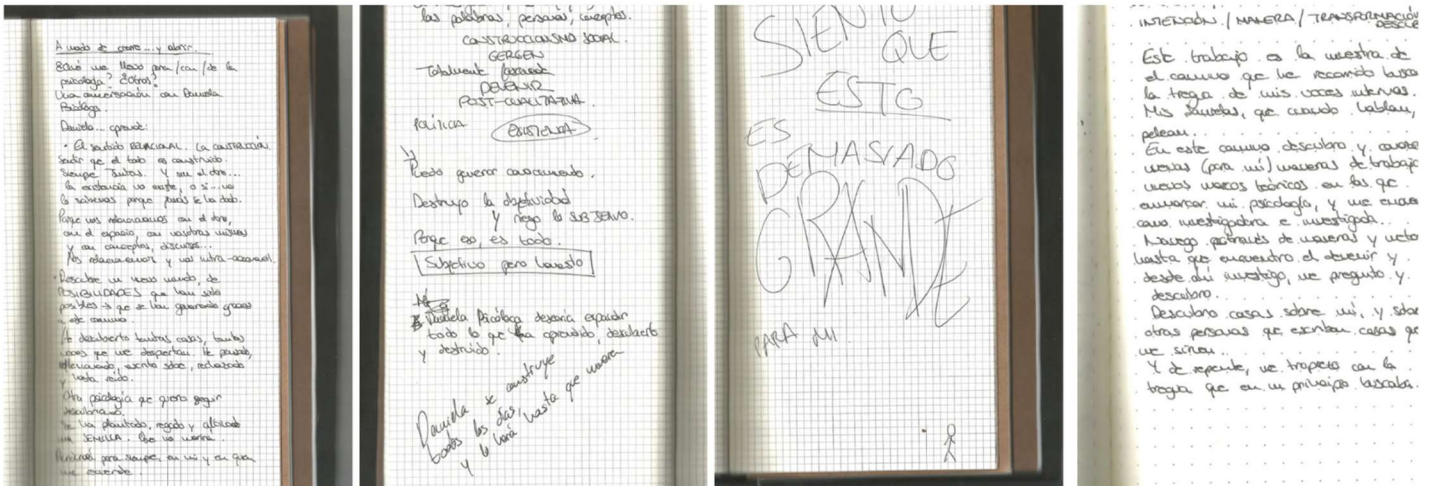 A modo de cierre... y abrir.
¿Qué me llevo para/con/de la
psicología? ¿Otros?
Una conversación con Daniela
Psicóloga.
Daniela... aprende:
• El sentido RELACIONAL. La CONSTRUCCIÓN
Sentir que el todo es construido.
Siempre Juntas. Y con el otro...
la existencia no existe, o si... no
lo sabremos porque jamás se ha dado.
Porque nos relacionamos con el otro,
con el espacio, con nosotras mismas
y con conceptos, discursos...
Nos relacionamos y
• Descubre un nuevo mundo, de
POSIBILIDADES que han sido
posibles → que se han generado gracias
a este camino
He descubierto tantas cosas, tantas
voces que me despertan. He pensado,
reflexionado, escrito sobre, rechazado
y hasta reído.
Otra psicología que quiero seguir
descubriendo.
Se ha plantado, regado y
una SEMILLA. Que no morirá.
para siempre, en mi y en quien
me
las palabras, personas, conceptos.
CONSTRUCCIONISMO SOCIAL.
GERGEN
Totalmente
DEVENIR
POST-CUALITATIVA.
POLÍTICA
Puedo generar conocimiento.
Destruyo la objetividad
y niego lo SUBJETIVO.
Porque eso, es todo.
Subjetivo pero honesto
Daniela Psicóloga desearía expandir
todo lo que ha aprendido, descubierto
y destruido.
Daniela se construye
todos los días,
y lo hará hasta que muera
SIENTO
QUE
ESTO
ES
DEMASIADO
GRANDE
PARA MI
INTENCIÓN / MANERA / TRANSFORMACIÓN
DESDE
Este trabajo es la muestra de
el camino que he recorrido hasta
la tregua de mis voces internas.
Mis Danielas, que cuando hablan,
pelean.
En este camino descubro y conozco
nuevas (para mi) maneras de trabajo
nuevos marcos teóricos en los que
enmarcar mi psicología, y me
como investigadora e investigada.
Navego por través de maneras y
hasta que encuentro el devenir y
desde ahí investigo, me pregunto y
descubro.
Descubro cosas sobre mi, y sobre
otras personas que escriben cosas que
me sirven.
Y de repente, me tropiezo con la
tregua que en un principio buscaba.